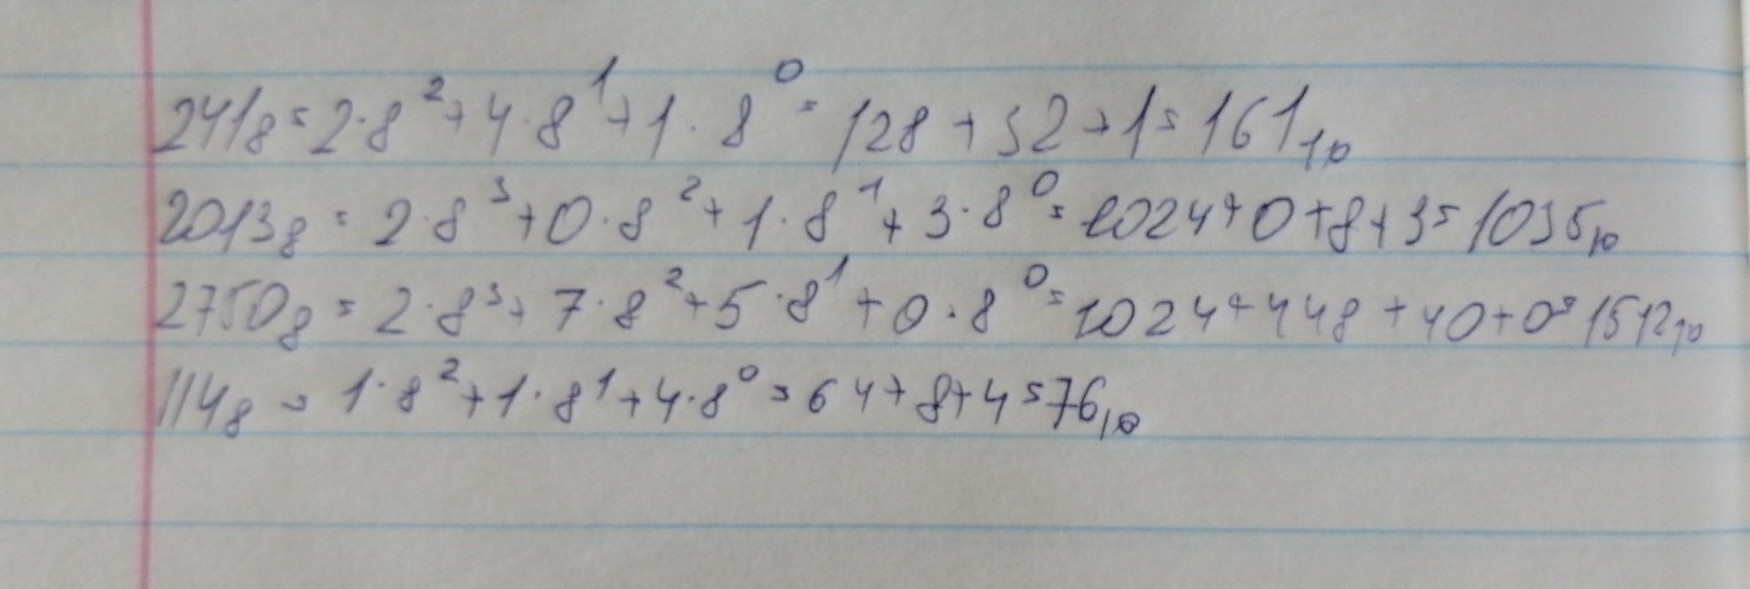 241₈ = 2·8² + 4·8¹ + 1·8⁰ = 128 + 32 + 1 = 161₁₀
2013₈ = 2·8³ + 0·8² + 1·8¹ + 3·8⁰ = 1024 + 0 + 8 + 3 = 1035₁₀
2750₈ = 2·8³ + 7·8² + 5·8¹ + 0·8⁰ = 1024 + 448 + 40 + 0 = 1512₁₀
114₈ = 1·8² + 1·8¹ + 4·8⁰ = 64 + 8 + 4 = 76₁₀